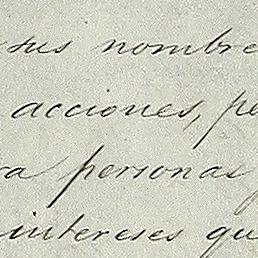 sus nombre
acciones, pe
ra personas
intereses qu